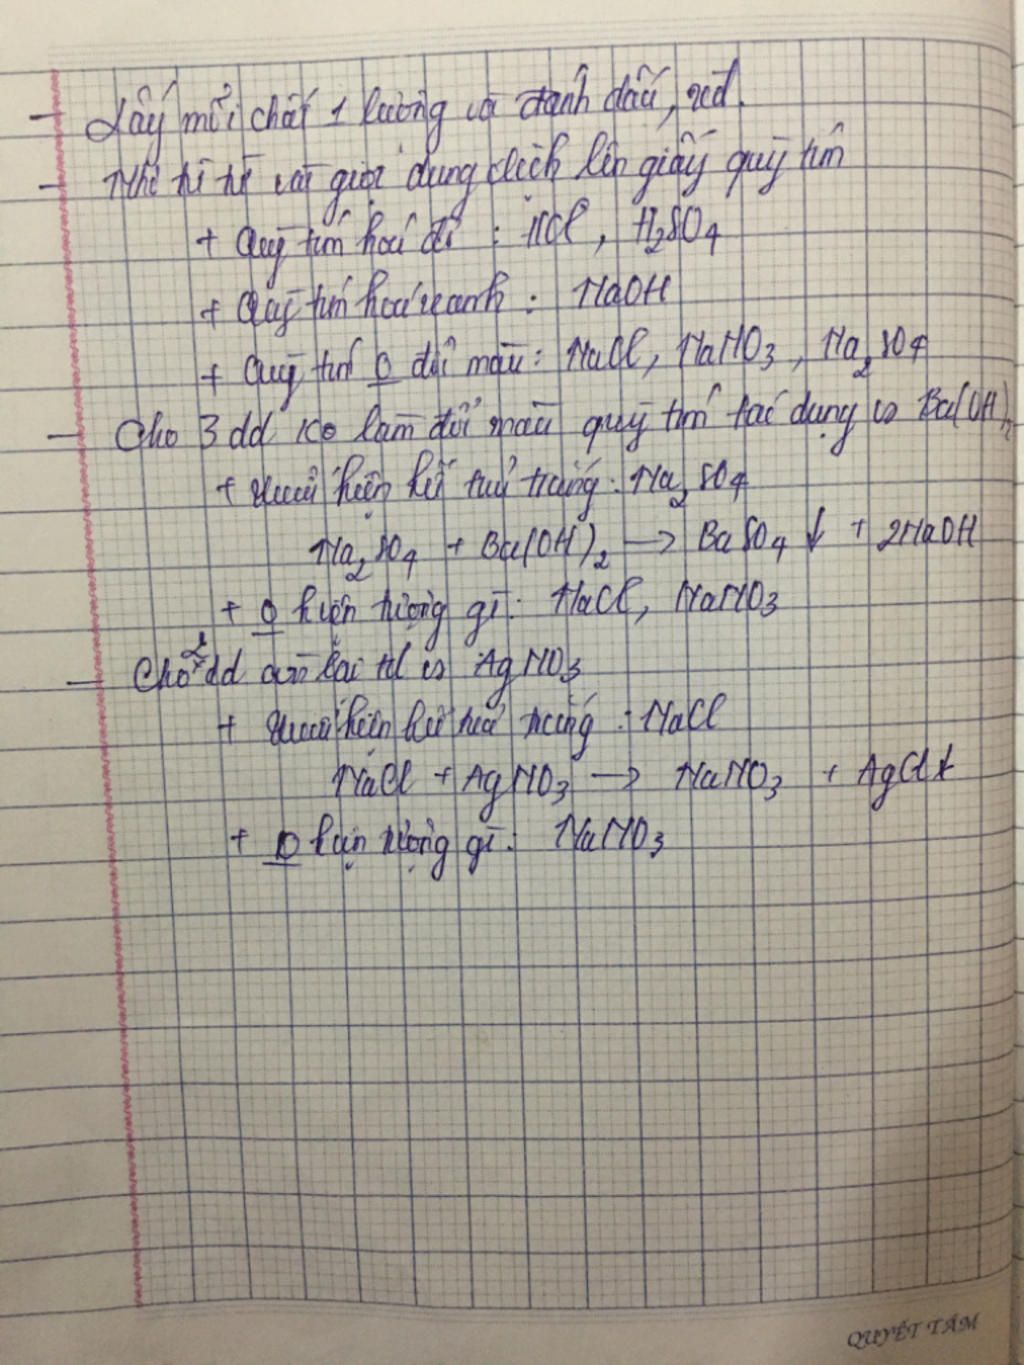 - Lấy mỗi chất 1 lượng và đánh dấu
- Nhỏ từ từ vài giọt dung dịch lên giấy quỳ tím
+ Quỳ tím hoá đỏ : HCl, H₂SO₄
+ Quỳ tím hoá xanh : NaOH
+ Quỳ tím O đổi màu : NaCl, NaNO₃, Na₂SO₄
- Cho 3 dd ko làm đổi màu quỳ tím tác dụng vs Ba(OH)₂
+ Xuất hiện kết tuả trắng : Na₂SO₄
Na₂SO₄ + Ba(OH)₂ → BaSO₄ ↓ + 2NaOH
+ O hiện tượng gì : NaCl, NaNO₃
- Cho 2 dd còn lại td vs AgNO₃
+ Xuất hiện kết tuả trắng : NaCl
NaCl + AgNO₃ → NaNO₃ + AgCl↓
+ O hiện tượng gì : NaNO₃
QUYẾT TÂM